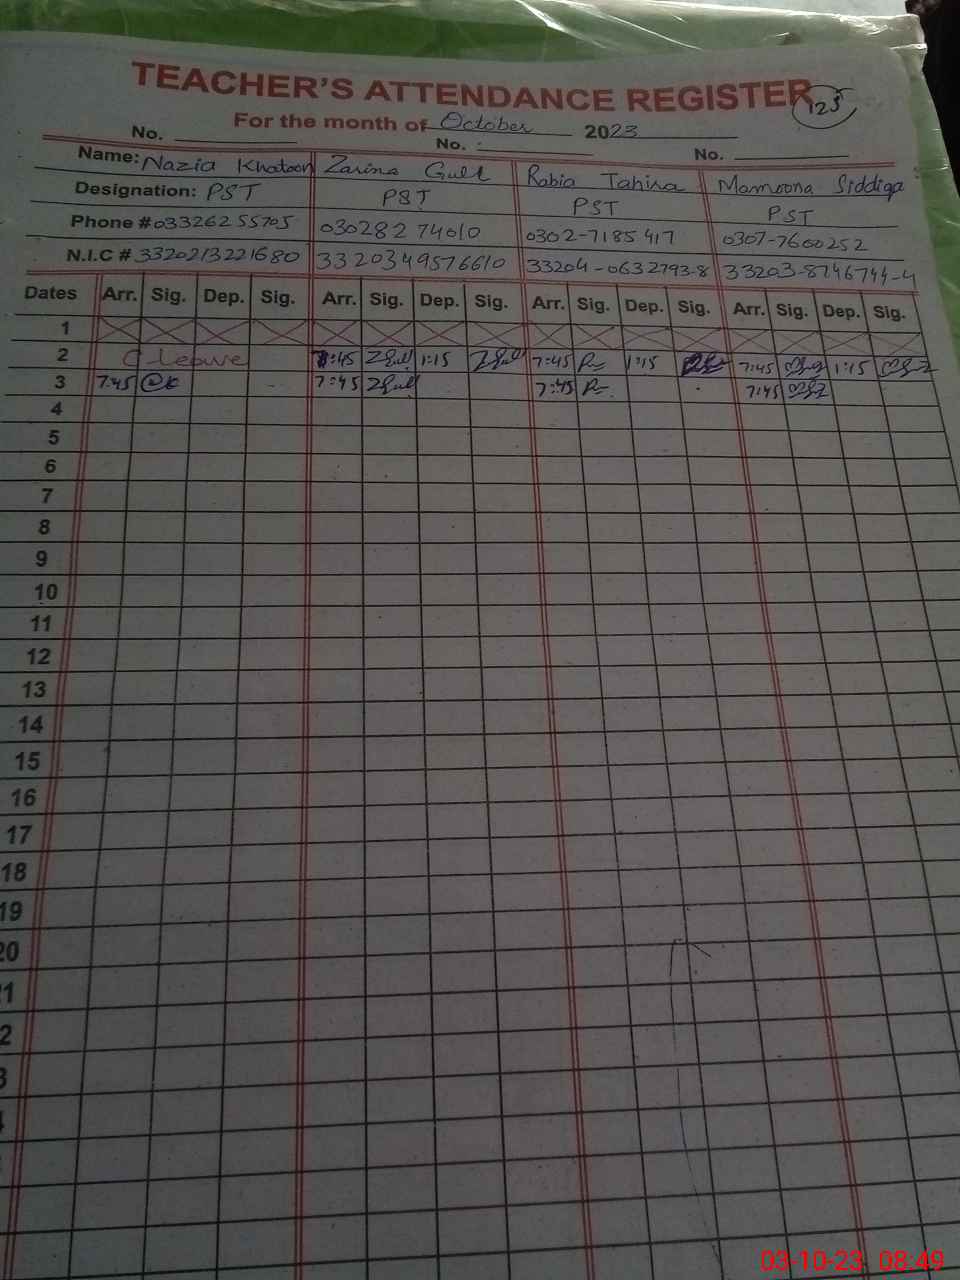 TEACHER'S ATTENDANCE REGISTER 125
For the month of October 2023
No. No. : No.
Name: Nazia Khatoon Zarina Gull Rabia Tahira Mamoona Siddiqa
Designation: PST PST PST PST
Phone # 03326255705 03028274010 0302-7185417 0307-7600252
N.I.C # 3320213221680 3320349576610 33204-0632793-8 33203-8746744-4
Dates Arr. Sig. Dep. Sig. Arr. Sig. Dep. Sig. Arr. Sig. Dep. Sig. Arr. Sig. Dep. Sig.
1
2 C leave 7:45 ZGull 1:15 ZGull 7:45 1:15 7:45 1:15
3 7:45 7:45 ZGull 7:45 7:45
4
5
6
7
8
9
10
11
12
13
14
15
16
17
18
19
20
1
2
3
4
03-10-23 08:49